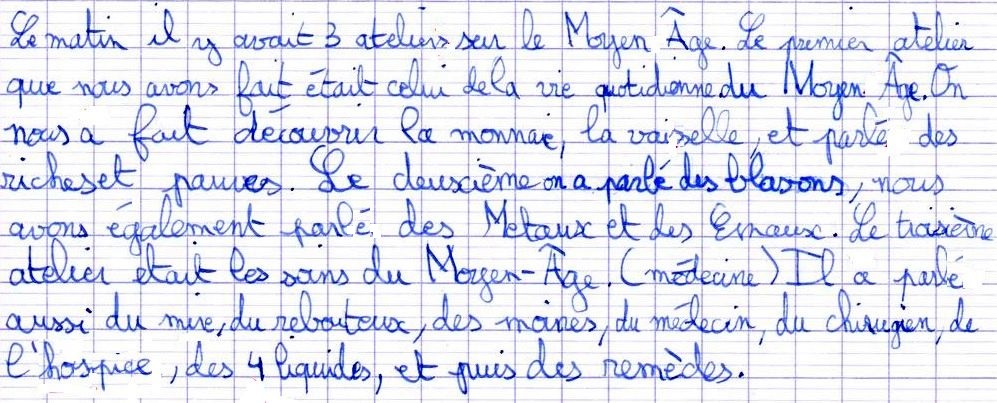 Le matin il y avait 3 ateliers sur le Moyen Âge. Le premier atelier
que nous avons fait était celui de la vie quotidienne du Moyen Âge. On
nous a fait découvrir la monnaie, la vaiselle, et parlé des
riches et pauvres. Le deuxième on a parlé des blasons, nous
avons également parlé des Métaux et des Emaux. Le troisième
atelier était les soins du Moyen-Âge. (médecine) Il a parlé
aussi du mire, du rebouteux, des moines, du médecin, du chirugien, de
l'hospice, des 4 liquides, et puis des remèdes.